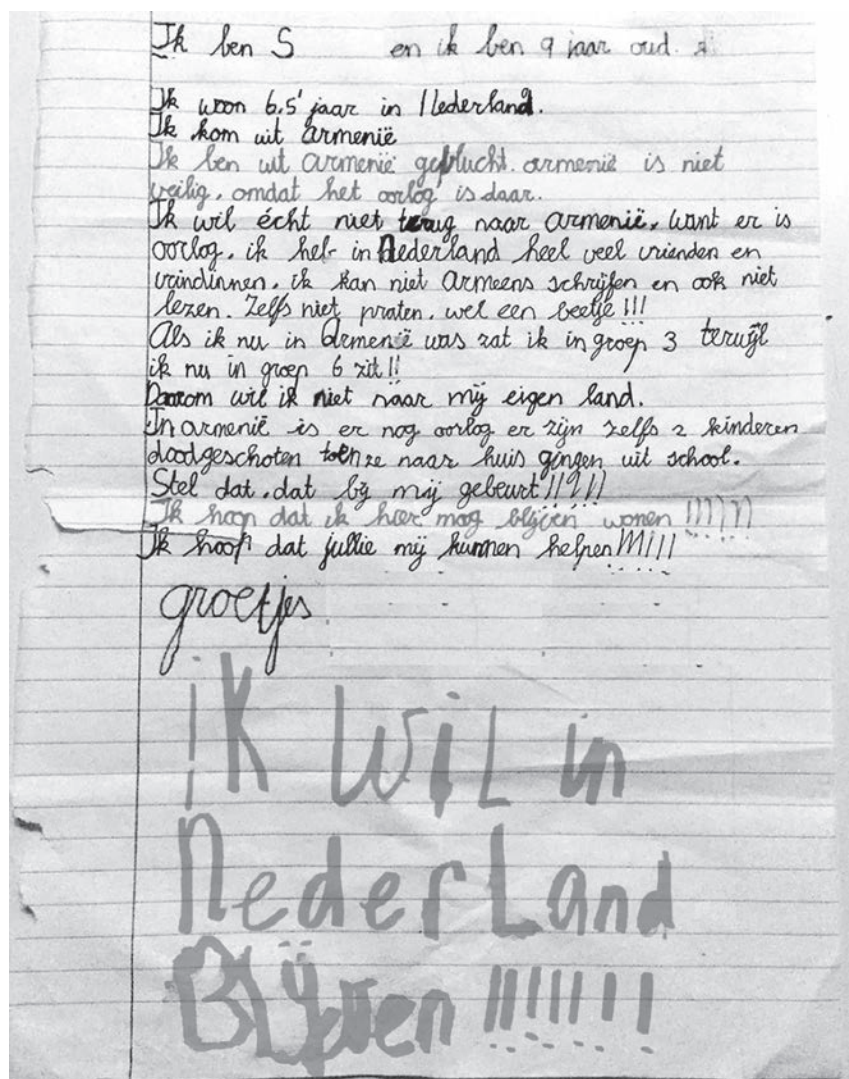 Ik ben S en ik ben 9 jaar oud.
Ik woon 6,5 jaar in Nederland.
Ik kom uit Armenië
Ik ben uit Armenië gevlucht. armenië is niet
veilig, omdat het oorlog is daar.
Ik wil écht niet terug naar armenië, want er is
oorlog. ik heb in Nederland heel veel vrienden en
vrindinnen. ik kan niet Armeens schrijfen en ook niet
lezen. Zelfs niet praten. wel een beetje !!!
Als ik nu in Armenië was zat ik in groep 3 terwijl
ik nu in groep 6 zit!!
Daarom wil ik niet naar mij eigen land.
In armenië is er nog oorlog er zijn zelfs 2 kinderen
doodgeschoten toen ze naar huis gingen uit school.
Stel dat, dat bij mij gebeurt!!?!!
Ik hoop dat ik hier mag blijven wonen !!!!!!
Ik hoop dat jullie mij kunnen helpen!!!!!!
groetjes
iK WiL in
NederLand
BLijven !!!!!!!